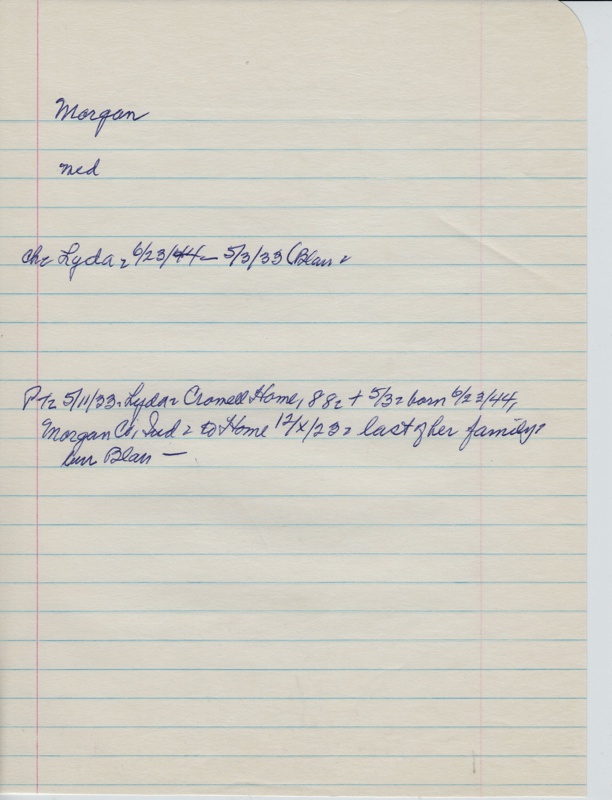 Morgan
Ned
ch= Lyda= 6/23/44 - 5/3/33 (Blan =
PT= 5/11/33= Lyda= Cromell Home, 88= + 5/3= born 6/23/44,
Morgan Co, Ind = to Home 12/x/23= last of her family=
bur Blan —